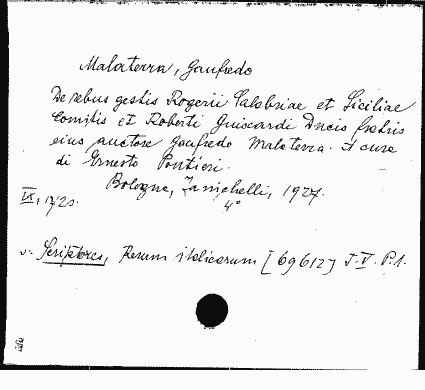 Malaterra, Gaufredo
De rebus gestis Rogerii Calabriae et Siciliae
Comitis et Roberti Guiscardi Ducis fratris
eius auctore Gaufredo Malaterra. A cura
di Ernesto Pontieri.
Bologna, Zanichelli, 1927.
4°
IX, 172 s.
v. Scriptores, Rerum italicarum [69612] T.V. P.1.